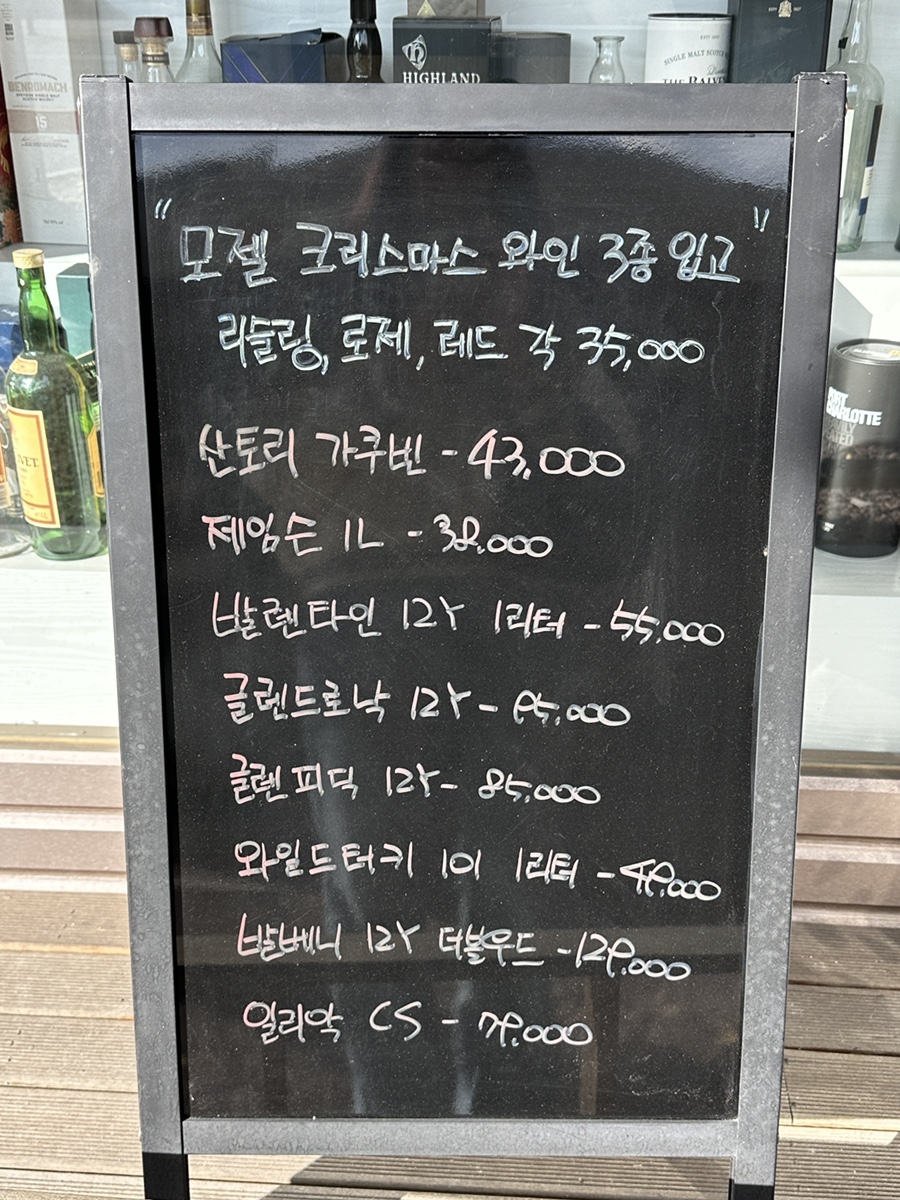 BENROMACH
15
HIGHLAND
SINGLE MALT SCOTCH
THE BALVE
" 모젤 크리스마스 와인 3종 입고 "
리슬링, 로제, 레드 각 35,000
산토리 가쿠빈 - 43,000
제임슨 1L - 38,000
발렌타인 12Y 1리터 - 55,000
글렌드로낙 12Y - 95,000
글렌피딕 12Y - 85,000
와일드터키 101 1리터 - 49,000
발베니 12Y 더블우드 - 129,000
일리악 CS - 79,000
VET
CHARLOTTE